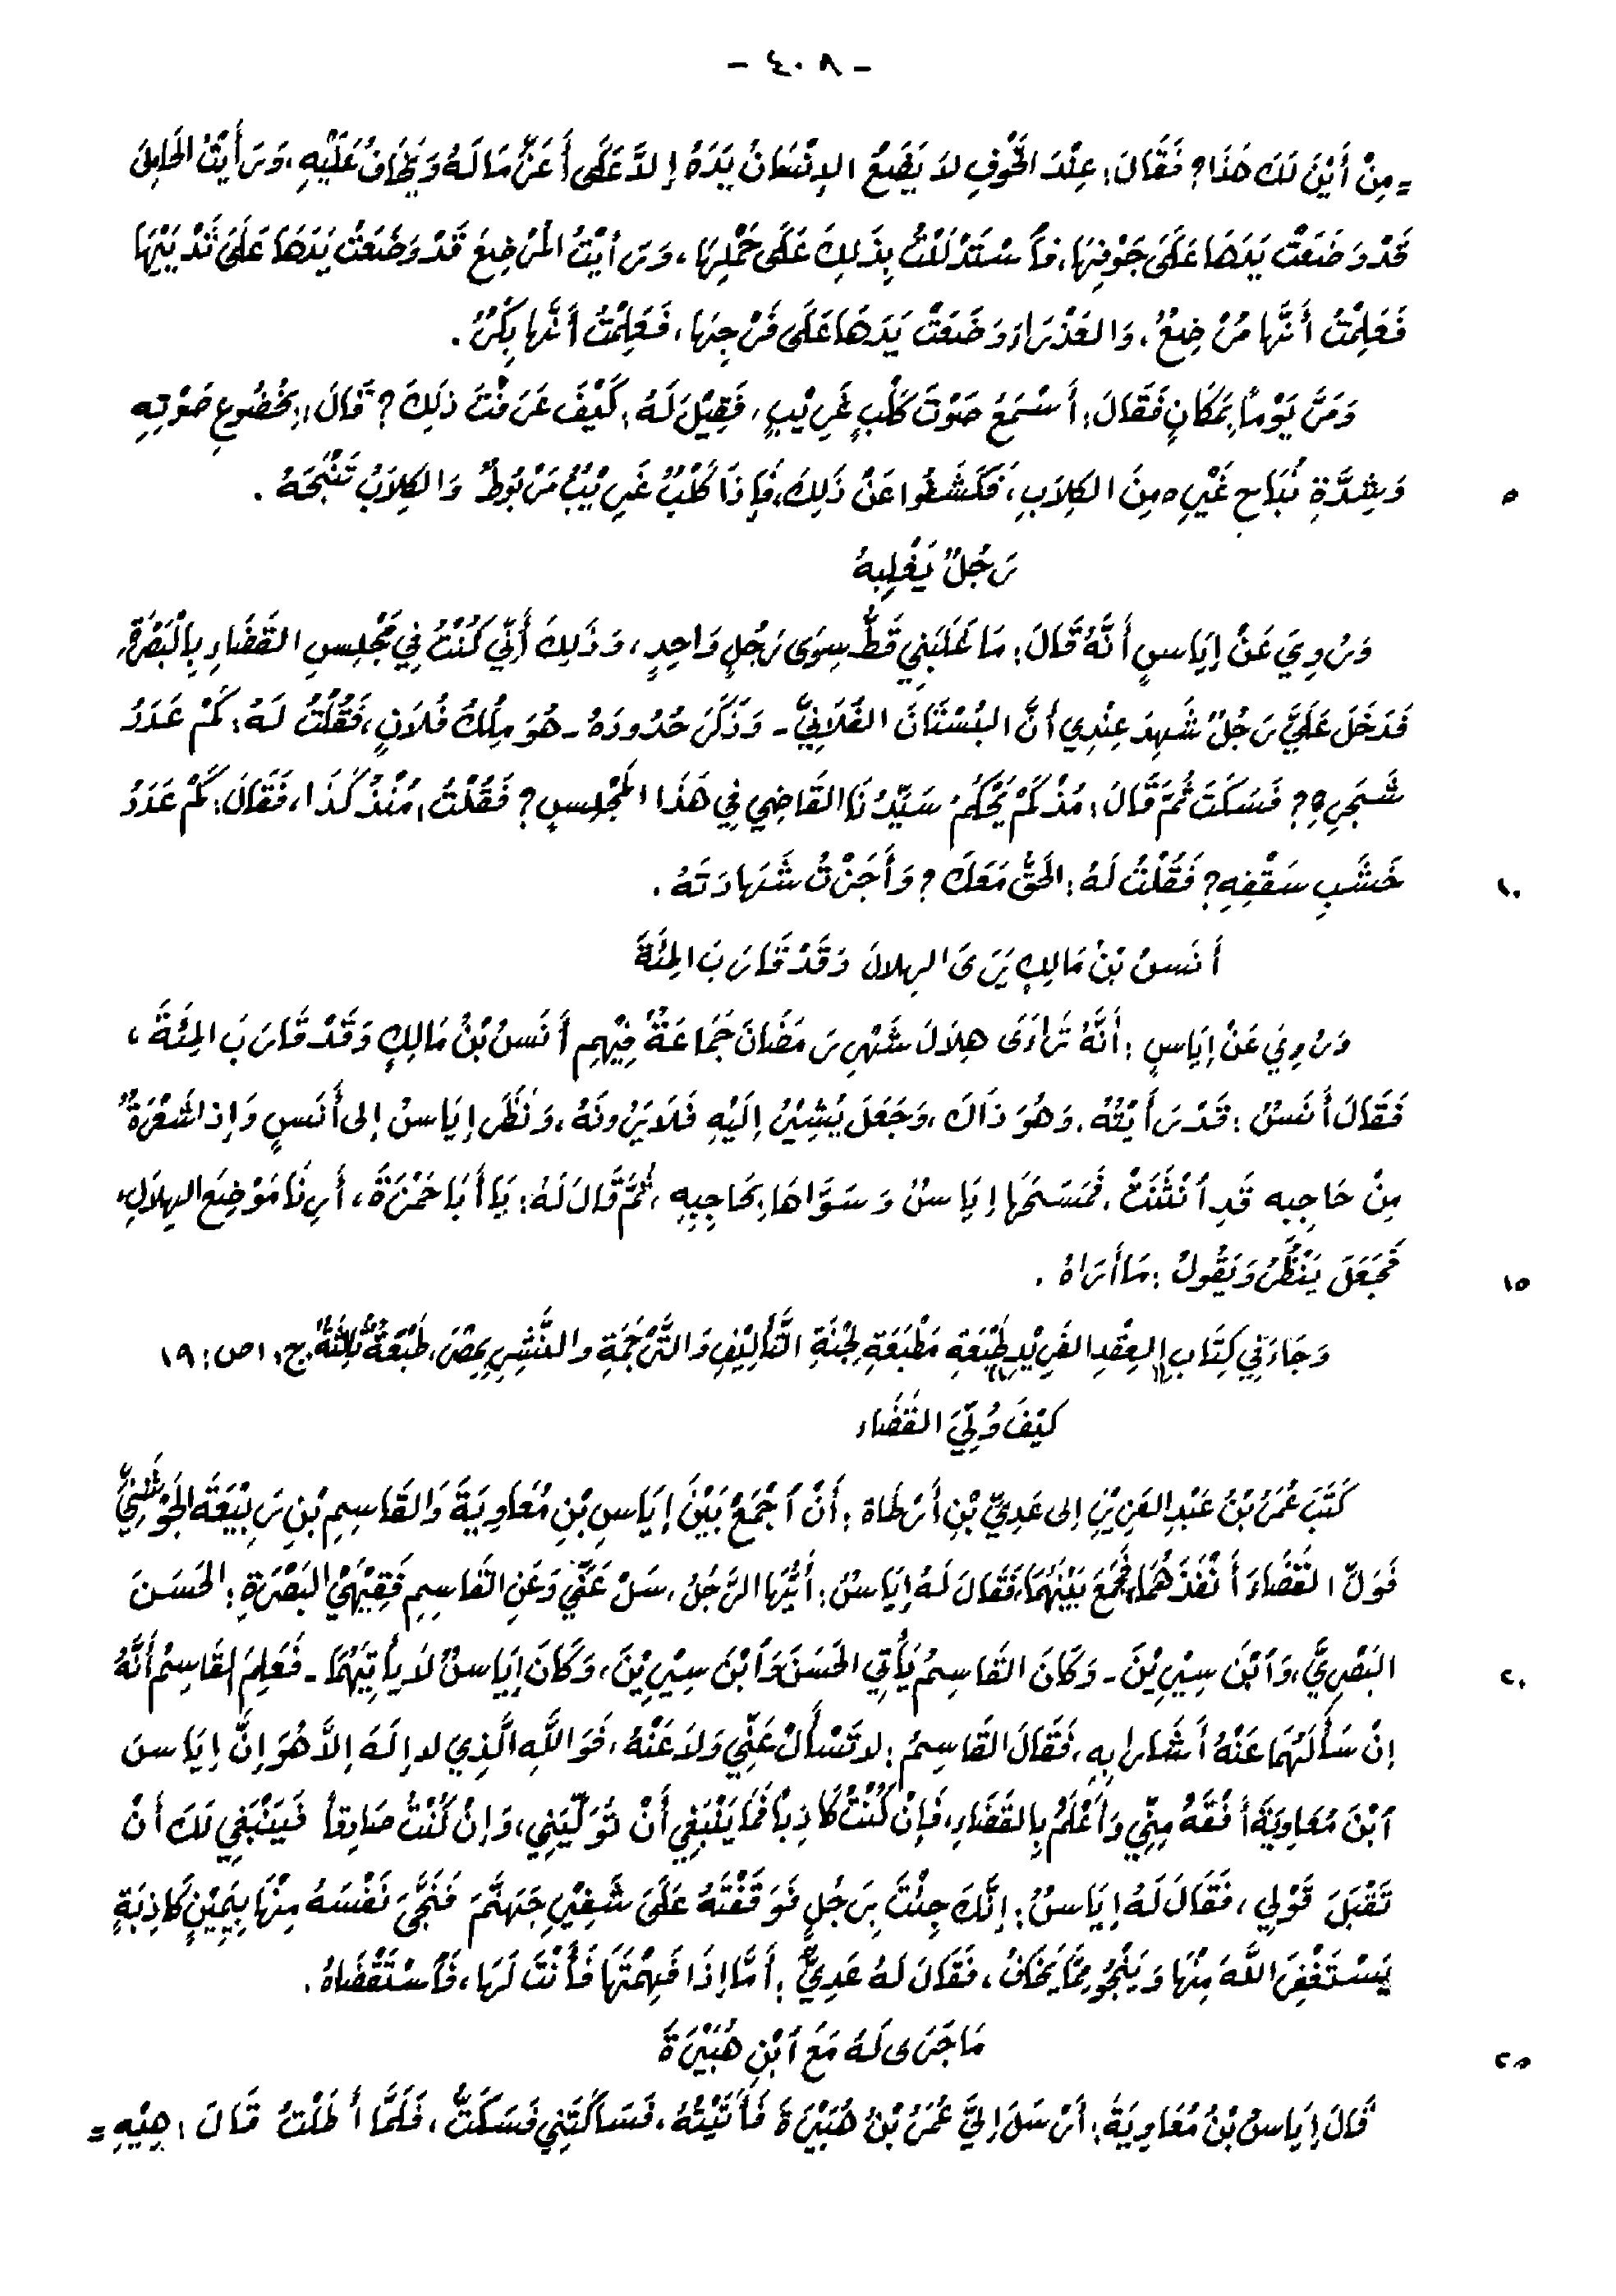 - ٨٠٤ -
= مِنْ أَيْنَ لَكَ هَذَا؟ فَقَالَ: عِنْدَ الخَوْفِ لاَ يَضَعُ الإنْسَانُ يَدَهُ إلاَّ عَلَى أَعَزِّ مَا لَهُ وَيَخَافُ عَلَيْهِ، وَرَأَيْتُ الحَامِلَ
قَدْ وَضَعَتْ يَدَهَا عَلَى جَوْفِهَا، فَاسْتَدْلَلْتُ بِذَلِكَ عَلَى حَمْلِهَا، وَرَأيْتُ المُرْضِعَ قَدْ وَضَعَتْ يَدَهَا عَلَى ثَدْيَيْهَا
فَعَلِمْتُ أَنَّها مُرْضِعٌ، وَالعَذْرَاءَ وَضَعَتْ يَدَهَا عَلَى فَرْجِهَا، فَعَلِمْتُ أنَّها بِكْرٌ.
وَمَرَّ يَوْماً بِمَكَانٍ فَقَالَ: أَسْمَعُ صَوْتَ كَلْبٍ غَرِيْبٍ، فَقِيْلَ لَهُ: كَيْفَ عَرَفْتَ ذلِكَ؟ قالَ: بِخُضُوعِ صَوْتِهِ
وَشِدَّةِ نُبَاحِ غَيْرِهِ مِنَ الكِلاَبِ، فَكَشَفُوا عَنْ ذَلِكَ، فَإذَا كَلْبٌ غَرِيْبٌ مَرْبُوطٌ وَالكِلاَبُ تَنْبَحُهُ. ٥
رَجُلٌ يَغْلِبهُ
وَرُوِيَ عَنْ إيَاسٍ أَنَّهُ قَالَ: مَا غَلَبَنِي قَطُّ سِوَى رَجُلٍ وَاحِدٍ، وَذَلِكَ أَنِّي كُنْتُ فِي مَجْلِسِ القَضَاءِ بِالْبَصْرَةِ،
فَدَخَلَ عَلَيَّ رَجُلٌ شَهِدَ عِنْدِي أنَّ البُسْتَانَ الفُلاَنِيَّ - وَذَكَرَ حُدُودَهُ - هُوَ مِلْكُ فُلاَنٍ، فَقُلْتُ لَهُ: كَمْ عَدَدُ
شَجَرِهِ؟ فَسَكَتَ ثُمَّ قَالَ: مُذْ كَمْ يَحْكُمُ سَيِّدُنَا القَاضِي فِي هَذَا المَجْلِسِ؟ فَقُلْتُ: مُنْذُ كَذَا، فَقَالَ: كَمْ عَدَدُ
خَشَبِ سَقْفِهِ؟ فَقُلْتُ لَهُ: الحَقُّ مَعَكَ؟ وَأَجَزْتُ شَهَادَتَهُ. ١٠
أَنَسُ بْنُ مَالِكٍ يَرَى الهِلاَلَ وَقَدْ قَارَبَ المِئَةَ
وَرُوِيَ عَنْ إيَاسٍ: أَنَّهُ تَرَاءَى هِلاَلَ شَهْرِ رَمَضَانَ جَمَاعَةٌ فِيْهِم أَنَسُ بْنُ مَالِكٍ وَقَدْ قَارَبَ المِئَةَ،
فَقَالَ أَنَسٌ: قَدْ رَأَيْتُهُ، وَهُوَ ذَاكَ، وَجَعَلَ يُشِيْرُ إلَيْهِ فَلاَ يَرَوْنَهُ، وَنَظَرَ إيَاسُ إلى أَنَسٍ وَإذا شَعْرَةٌ
مِنْ حَاجِبِه قَدِ انْثَنَتْ، فَمَسَحَهَا إيَاسُ وَسَوَّاهَا بِحَاجِبِهِ، ثُمَّ قَالَ لَهُ: يَا أَبَا حَمْزَةَ، أَرِنَا مَوْضِعَ الهِلاَلِ،
فَجَعَلَ يَنْظُرُ وَيَقُولُ: مَا أَرَاهُ. ١٥
وَجَاءَ فِي كِتَابِ العِقْدِ الفَرِيْدِ طَبْعَةِ مَطْبَعَةِ لَجْنَةِ التَّأْلِيْفِ وَالتَّرْجَمَةِ وَالنَّشْرِ بِمِصْرَ، طَبْعَةٌ ثَالِثَةٌ، ج: ١ ص: ١٩
كَيْفَ وُلِّيَ القَضَاء
كَتَبَ عُمَرُ بْنُ عَبْدِ العَزِيْزِ إلى عَدِيِّ بْنِ أَرْطَاة: أَنْ اجْمَعْ بَيْنَ إيَاسِ بْنِ مُعَاوِيَةَ وَالقَاسِمِ بْنِ رَبِيْعَةَ الجَوْشَنِيِّ
فَوَلِّ القَضَاءَ أَنْفَذَهُمَا، فَجَمَعَ بَيْنَهُمَا، فَقَالَ لَهُ إيَاسُ: أَيُّهَا الرَّجُلُ، سَلْ عَنِّي وَعَنِ القَاسِمِ فَقِيْهَيْ البَصْرَةِ: الحَسَنَ
البَصْرِيَّ، وَابْنَ سِيْرِيْنَ - وَكَانَ القَاسِمُ يَأْتِي الحَسَنَ وَابْنَ سِيْرِيْنَ، وَكَانَ إيَاسُ لاَ يَأْتِيْهُمَا - فَعَلِمَ القَاسِمُ أَنَّهُ ٢٠
إنْ سَأَلَهُمَا عَنْهُ أَشَارَا بِهِ، فَقَالَ القَاسِمُ: لاَ تَسْأَلْ عَنِّي وَلاَ عَنْهُ، فَوَاللَّهِ الَّذِي لاَ إلَهَ إلاَّ هُوَ إنَّ إيَاسَ
ابْنَ مُعَاوِيَةَ أَفْقَهُ مِنِّي وَأَعْلَمُ بِالقَضَاءِ، فَإنْ كُنْتُ كَاذِباً فَمَا يَنْبَغِي أَنْ تُوَلِّيَنِي، وَإنْ كُنْتُ صَادِقاً فَيَنْبَغِي لَكَ أَنْ
تَقْبَلَ قَوْلِي، فَقَالَ لَهُ إيَاسُ: إنَّكَ جِئْتَ بِرَجُلٍ فَوَقَفْتَهُ عَلَى شَفِيْرِ جَهَنَّمَ فَنَجَّى نَفْسَهُ مِنْهَا بِيَمِيْنٍ كَاذِبَةٍ
يَسْتَغْفِرُ اللَّهَ مِنْهَا وَيَنْجُو مِمَّا يَخَافُ، فَقَالَ لَهُ عَدِيُّ: أَمَّا إذَا فَهِمْتَهَا فَأَنْتَ لَهَا، فَاسْتَقْضَاهُ.
مَا جَرَى لَهُ مَعَ ابْنِ هُبَيْرَةَ ٢٥
قَالَ إيَاسُ بْنُ مُعَاوِيَةَ: أَرْسَلَ إلَيَّ عُمَرُ بْنُ هُبَيْرَةَ فَأَتَيْتُهُ، فَسَاكَتَنِي فَسَكَتُّ، فَلَمَّا أَطَلْتُ قَالَ: هِيْهِ =